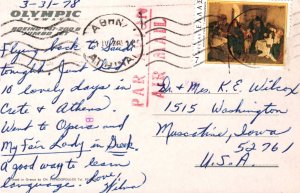 3-31-78
OLYMPIC
AIRWAYS
BOEING 747-200B
JUMBO JET
Flying back to Saudi
tonight. Just spent
10 lovely days in
Crete & Athens.
Went to Opera and
My Fair Lady in Greek.
A good way to learn
language. Love,
Wilma
PAR AVION
ΑΘΗΝΑΙ
ΕΛΛΑΣ
Dr & Mrs. K.E. Wilcox
1515 Washington
Muscatine, Iowa
52761
U.S.A.